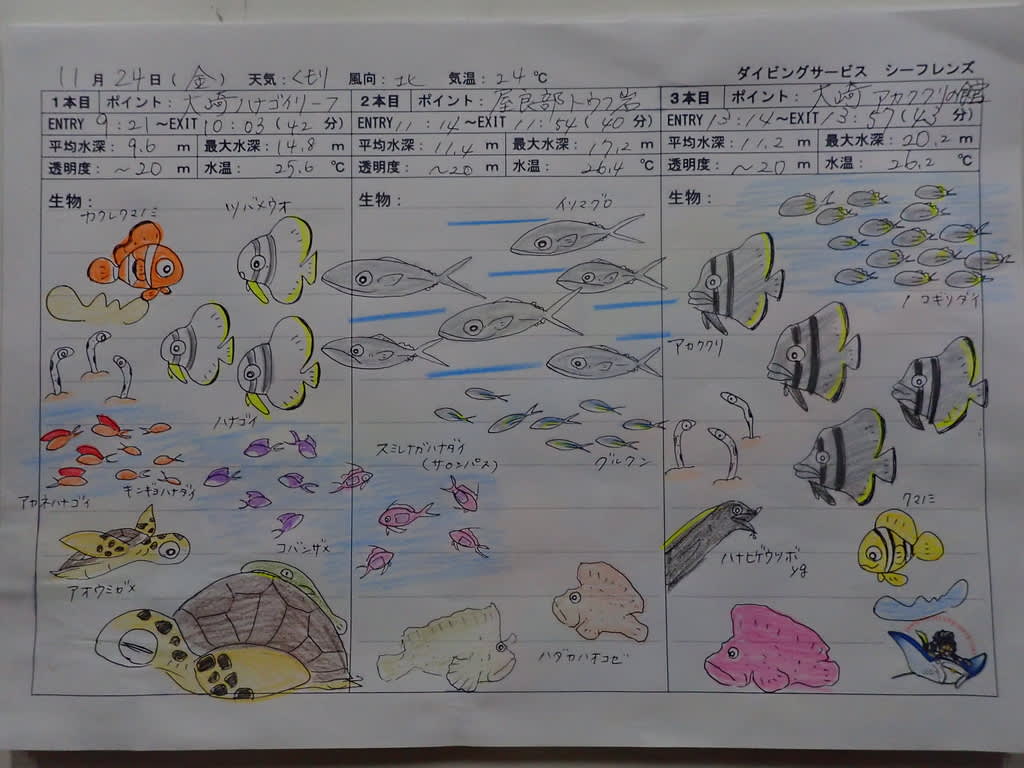 11月24日(金) 天気:くもり 風向:北 気温:24℃ ダイビングサービス シーフレンズ
1本目 ポイント:大崎ハナゴイリーフ
ENTRY 9:21~EXIT 10:03(42分)
平均水深:9.6 m 最大水深:14.8 m
透明度:~20 m 水温:25.6 ℃
生物:
カクレクマノミ
ツバメウオ
ハナゴイ
アカネハナゴイ
キンギョハナダイ
コバンザメ
アオウミガメ
2本目 ポイント:屋良部トウフ岩
ENTRY 11:14~EXIT 11:54(40分)
平均水深:11.4 m 最大水深:17.2 m
透明度:~20 m 水温:26.4 ℃
生物:
イソマグロ
グルクン
スミレナガハナダイ
(サロンパス)
ハダカハオコゼ
3本目 ポイント:大崎 アカククリの館
ENTRY 13:14~EXIT 13:57(43分)
平均水深:11.2 m 最大水深:20.2 m
透明度:~20 m 水温:26.2 ℃
生物:
ノコギリダイ
アカククリ
クマノミ
ハナヒゲウツボ
yg